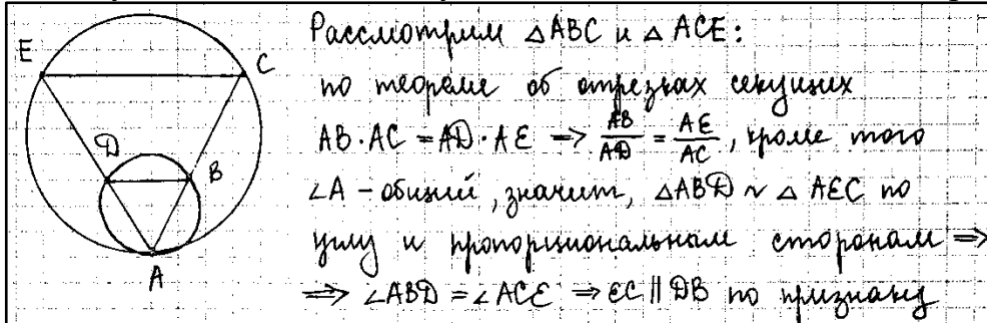 E
C
D
B
A
Рассмотрим △ABC и △ACE:
по теореме об отрезках секущих
AB·AC = AD·AE ⟹ AB/AD = AE/AC, кроме того
∠A – общий, значит, △ABD ~ △AEC по
углу и пропорциональным сторонам ⟹
⟹ ∠ABD = ∠ACE ⟹ EC ∥ DB по признаку